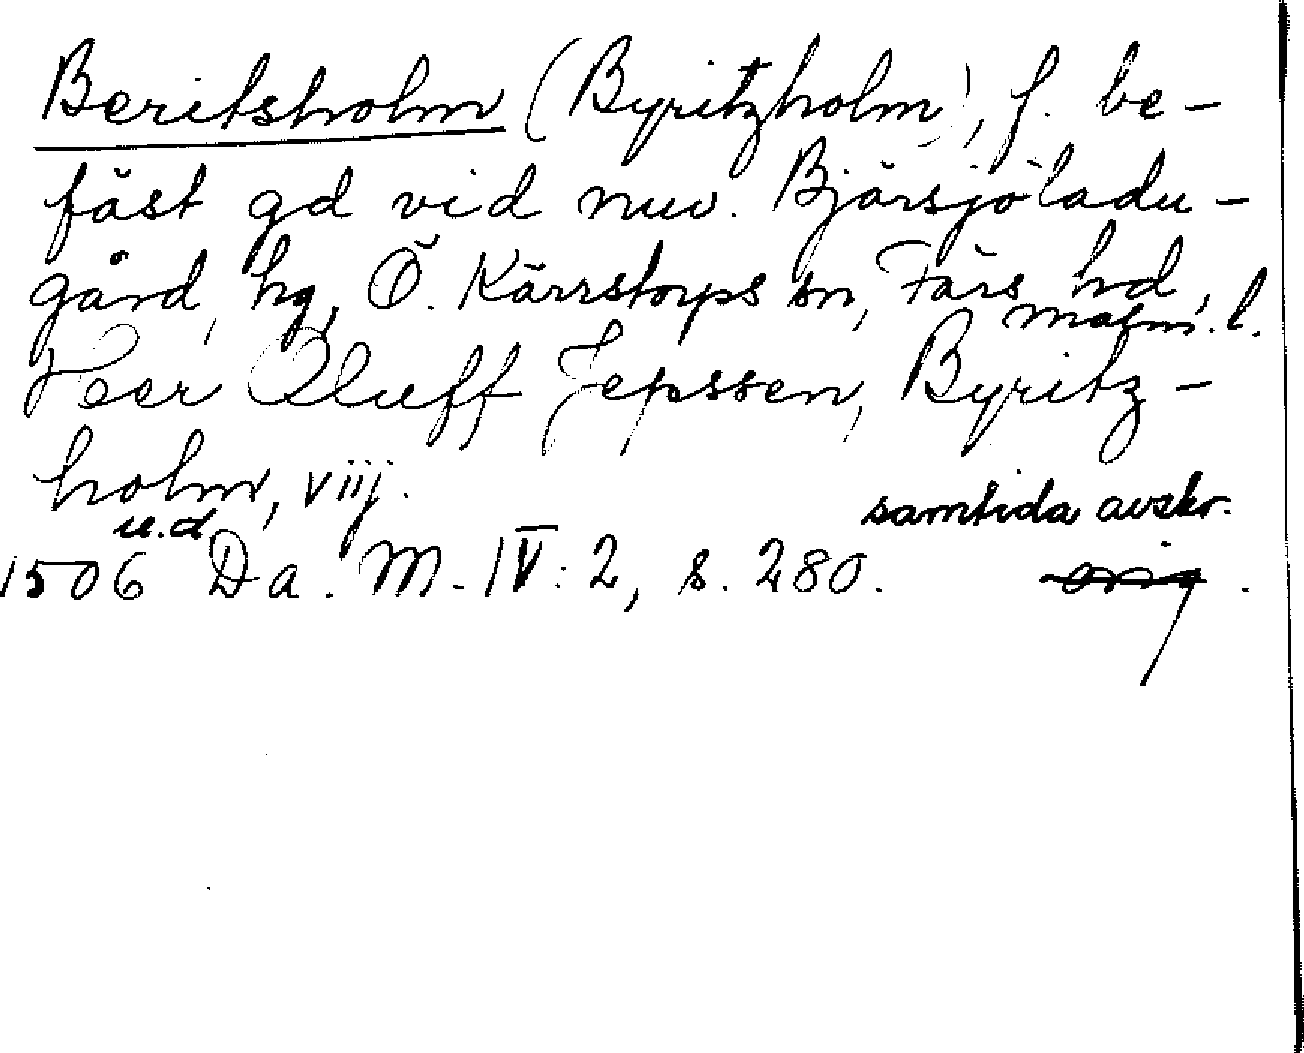 Beritsholm (Byritzholm), f. be-
fäst gd vid nuv. Bjärsjöladu-
gård, hg, Ö. Kärrstorps sn, Färs hd,
Malm. l.
Heer Oluff Jepssen, Byritz-
holm, viij.
u.d samtida avskr.
1506 Da. M. IV: 2, s. 280. orig.